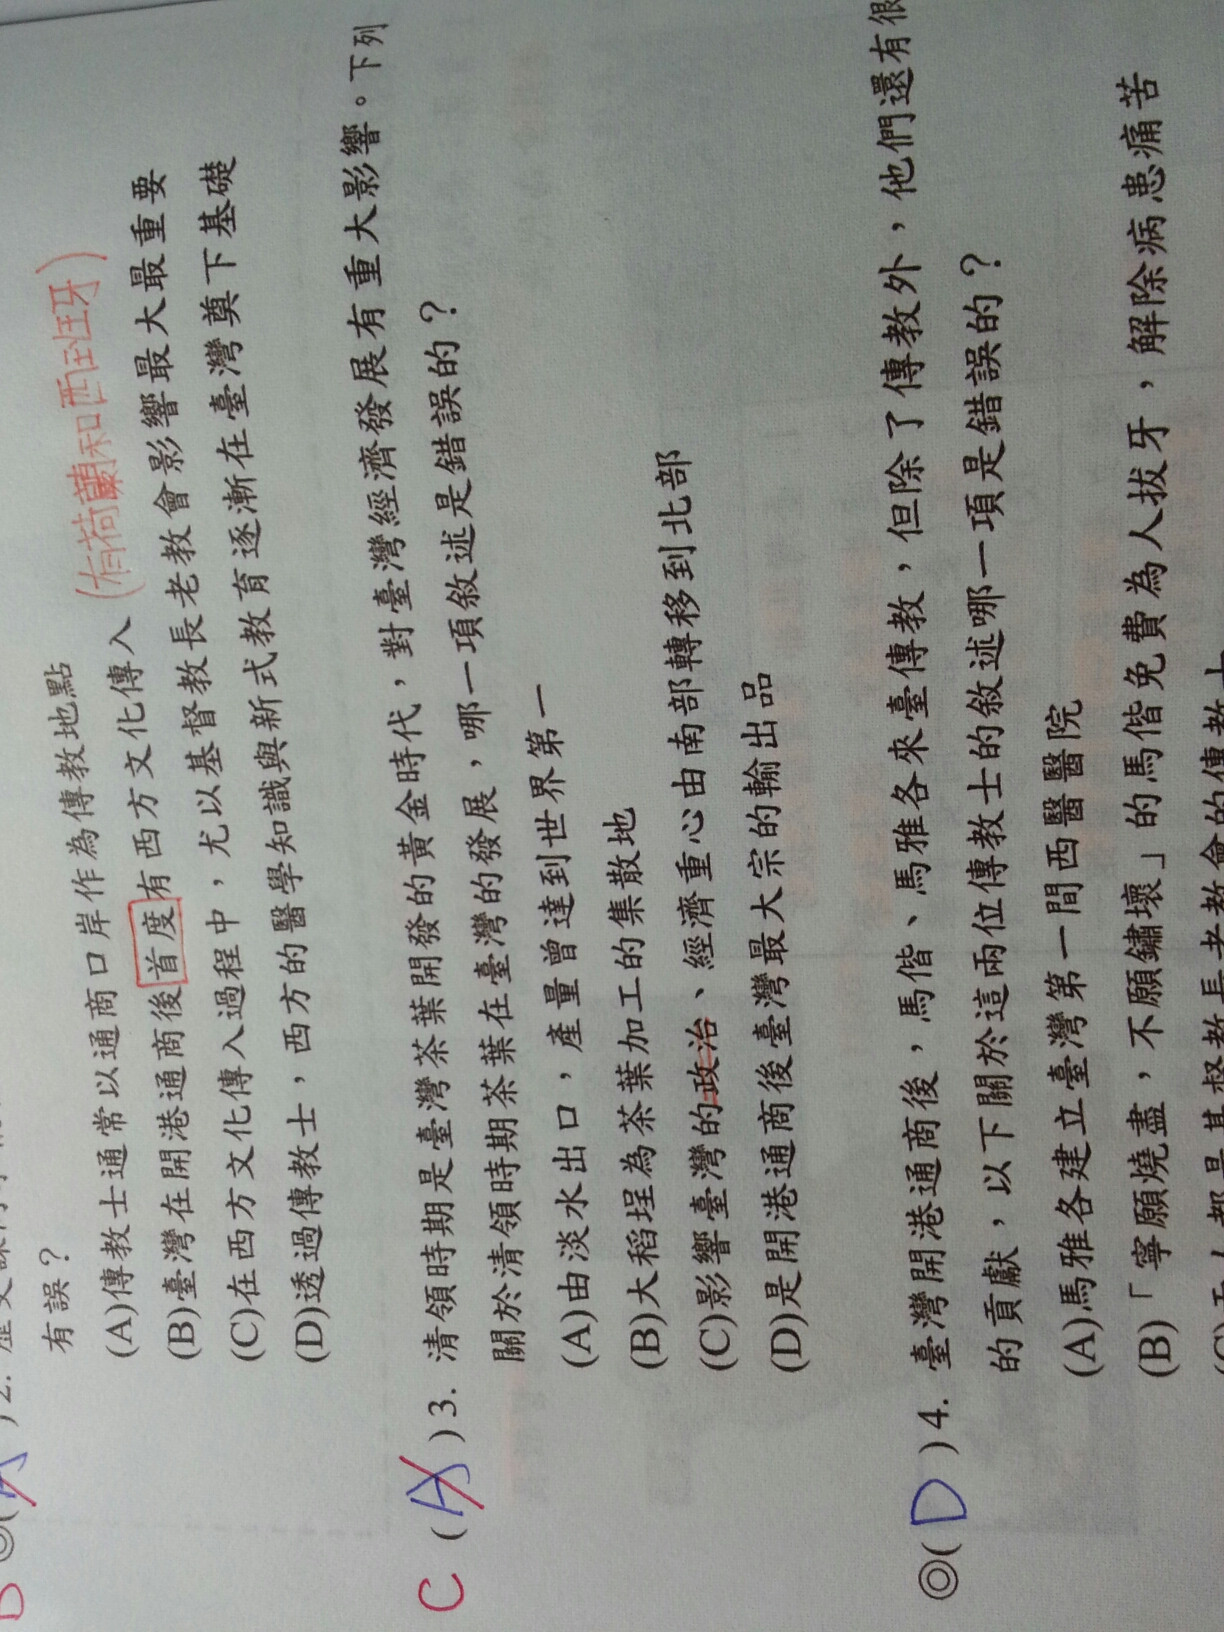 )2.
有誤？
(A)傳教士通常以通商口岸作為傳教地點
(B)臺灣在開港通商後首度有西方文化傳入 (有荷蘭和西班牙)
(C)在西方文化傳入過程中，尤以基督教長老教會影響最大最重要
(D)透過傳教士，西方的醫學知識與新式教育逐漸在臺灣奠下基礎
C (A)3. 清領時期是臺灣茶葉開發的黃金時代，對臺灣經濟發展有重大影響。下列
關於清領時期茶葉在臺灣的發展，哪一項敘述是錯誤的？
(A)由淡水出口，產量曾達到世界第一
(B)大稻埕為茶葉加工的集散地
(C)影響臺灣的政治、經濟重心由南部轉移到北部
(D)是開港通商後臺灣最大宗的輸出品
◎(D)4. 臺灣開港通商後，馬偕、馬雅各來臺傳教，但除了傳教外，他們還有很
的貢獻，以下關於這兩位傳教士的敘述哪一項是錯誤的？
(A)馬雅各建立臺灣第一間西醫醫院
(B)「寧願燒盡，不願鏽壞」的馬偕免費為人拔牙，解除病患痛苦